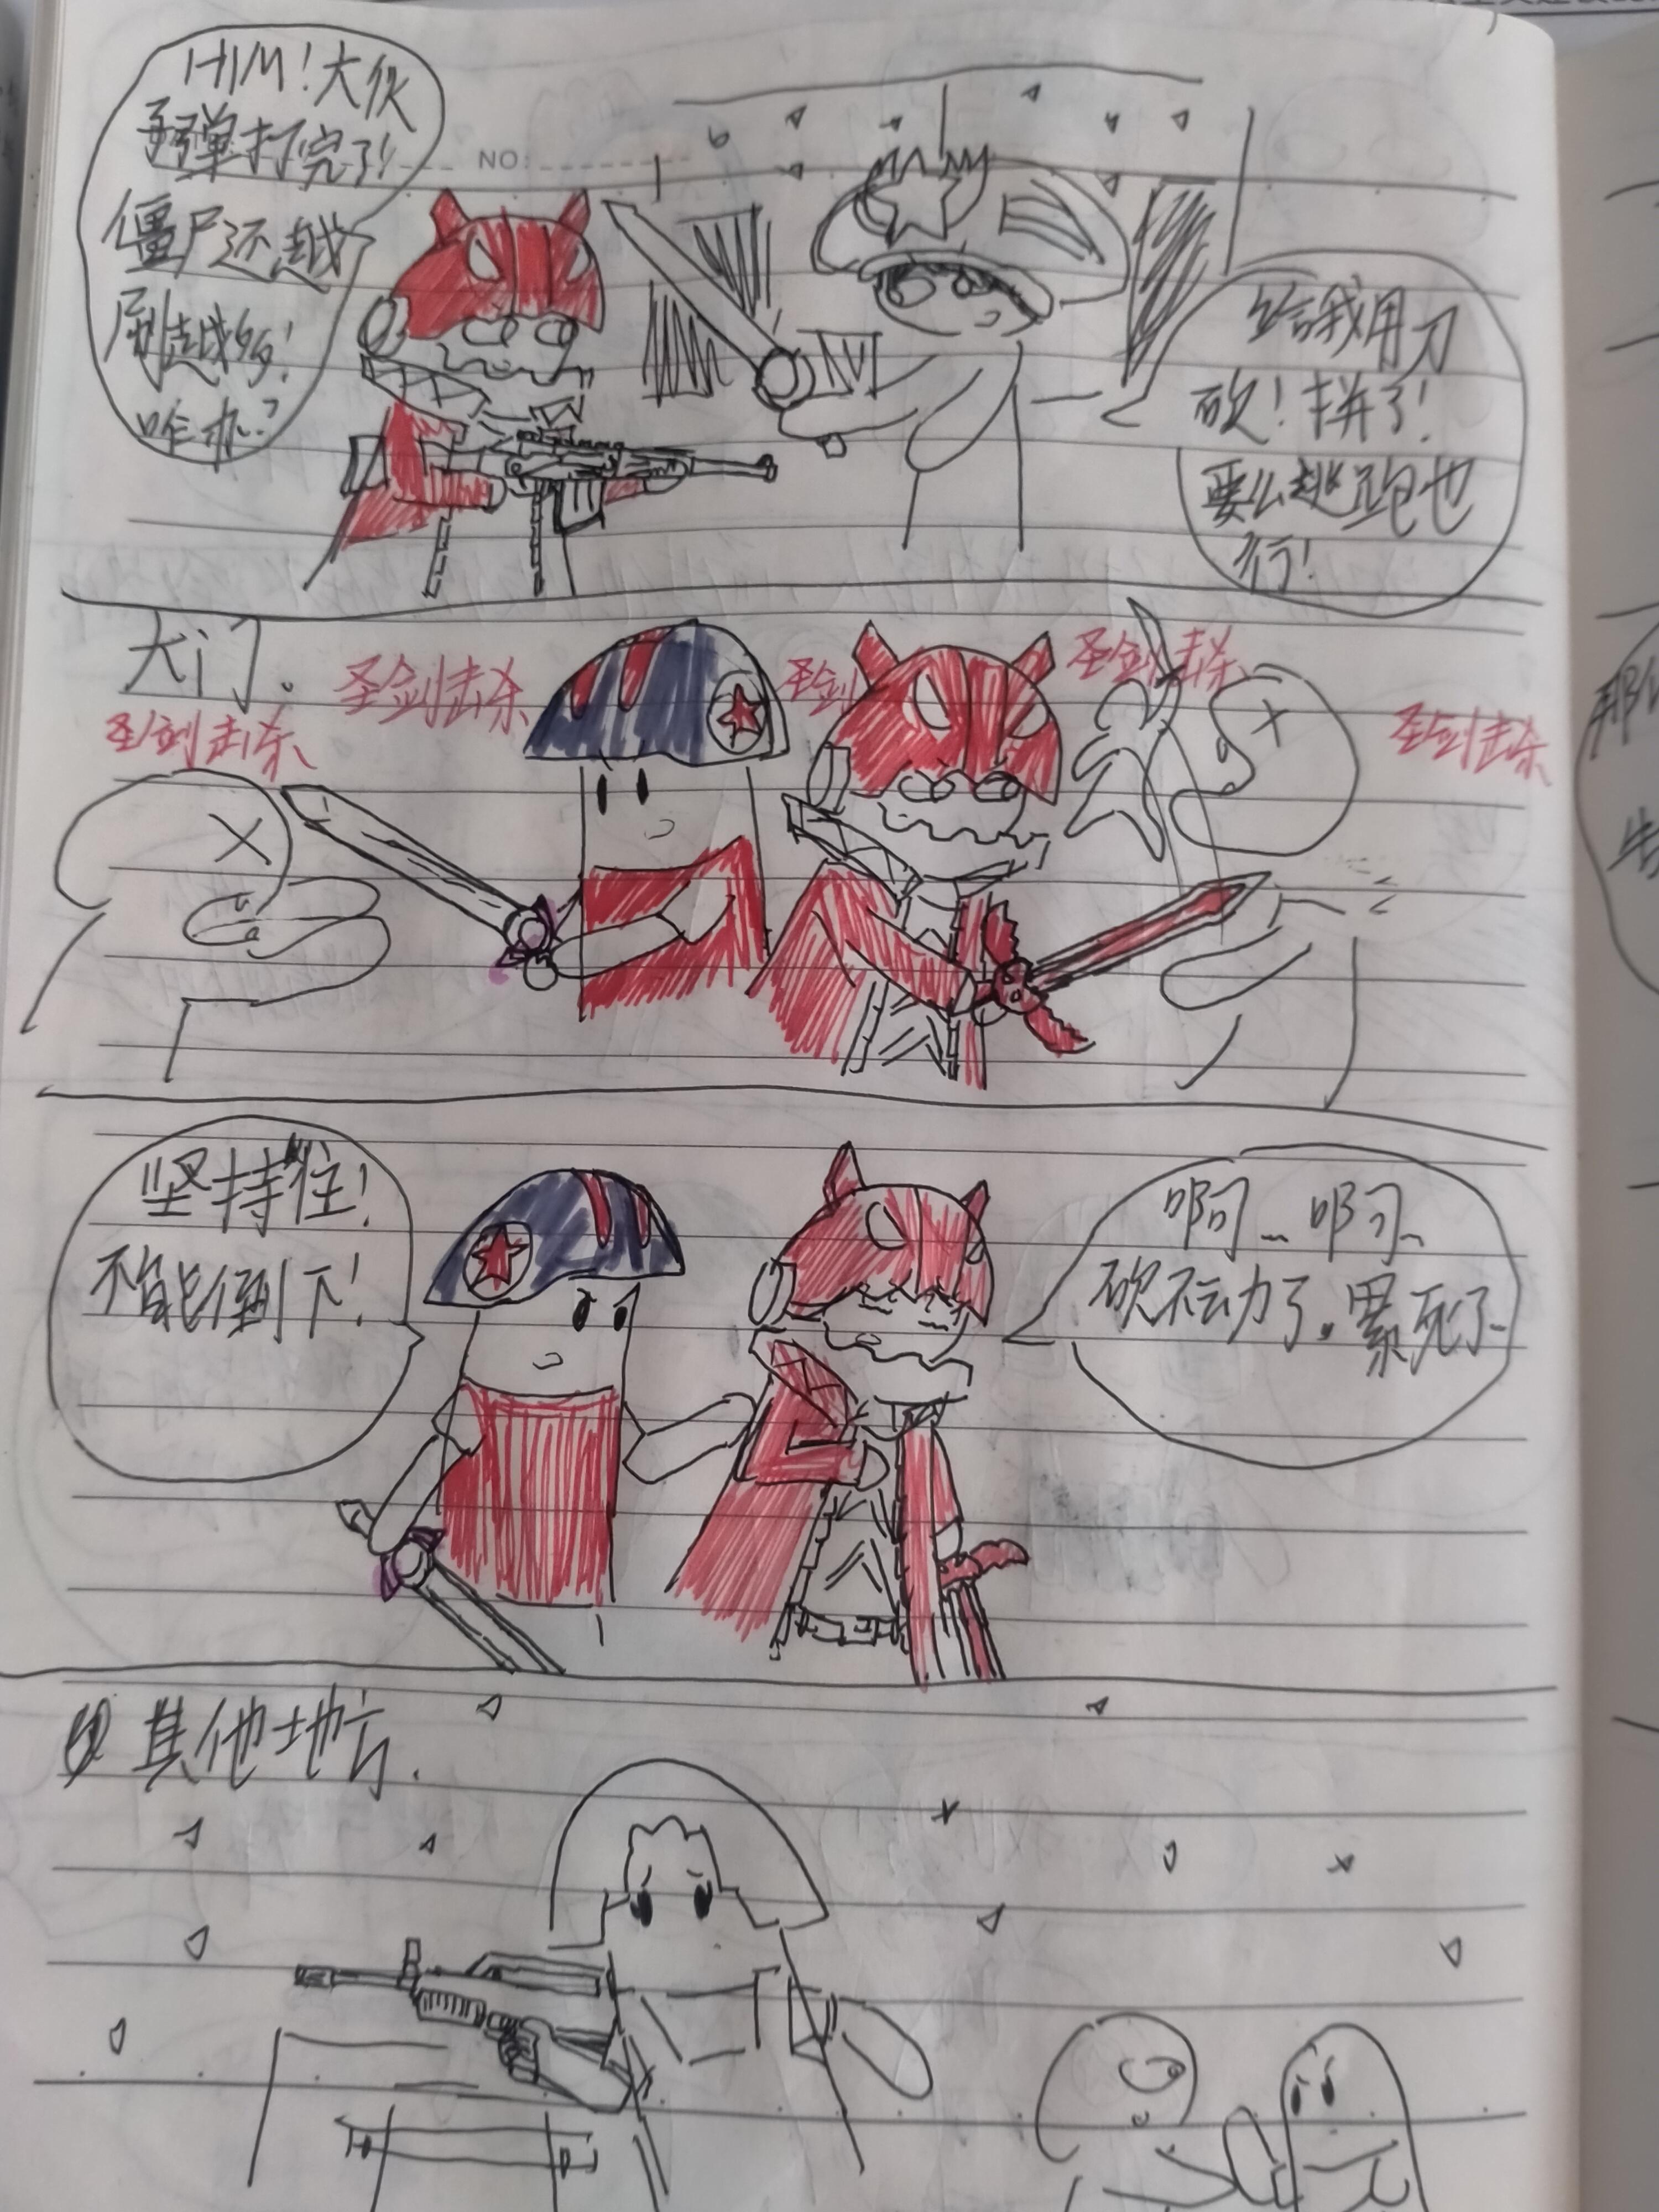 HIM！大伙
子弹打完了！
僵尸还越
刷越多！
咋办？
NO:
给我用刀
砍！拼了！
要么逃跑也
行！
大门.
圣剑击杀
圣剑击杀
圣剑
圣剑击杀
圣剑击杀
坚持住！
不能倒下！
啊…啊…
砍不动力了。累死了…
其他地方.
那